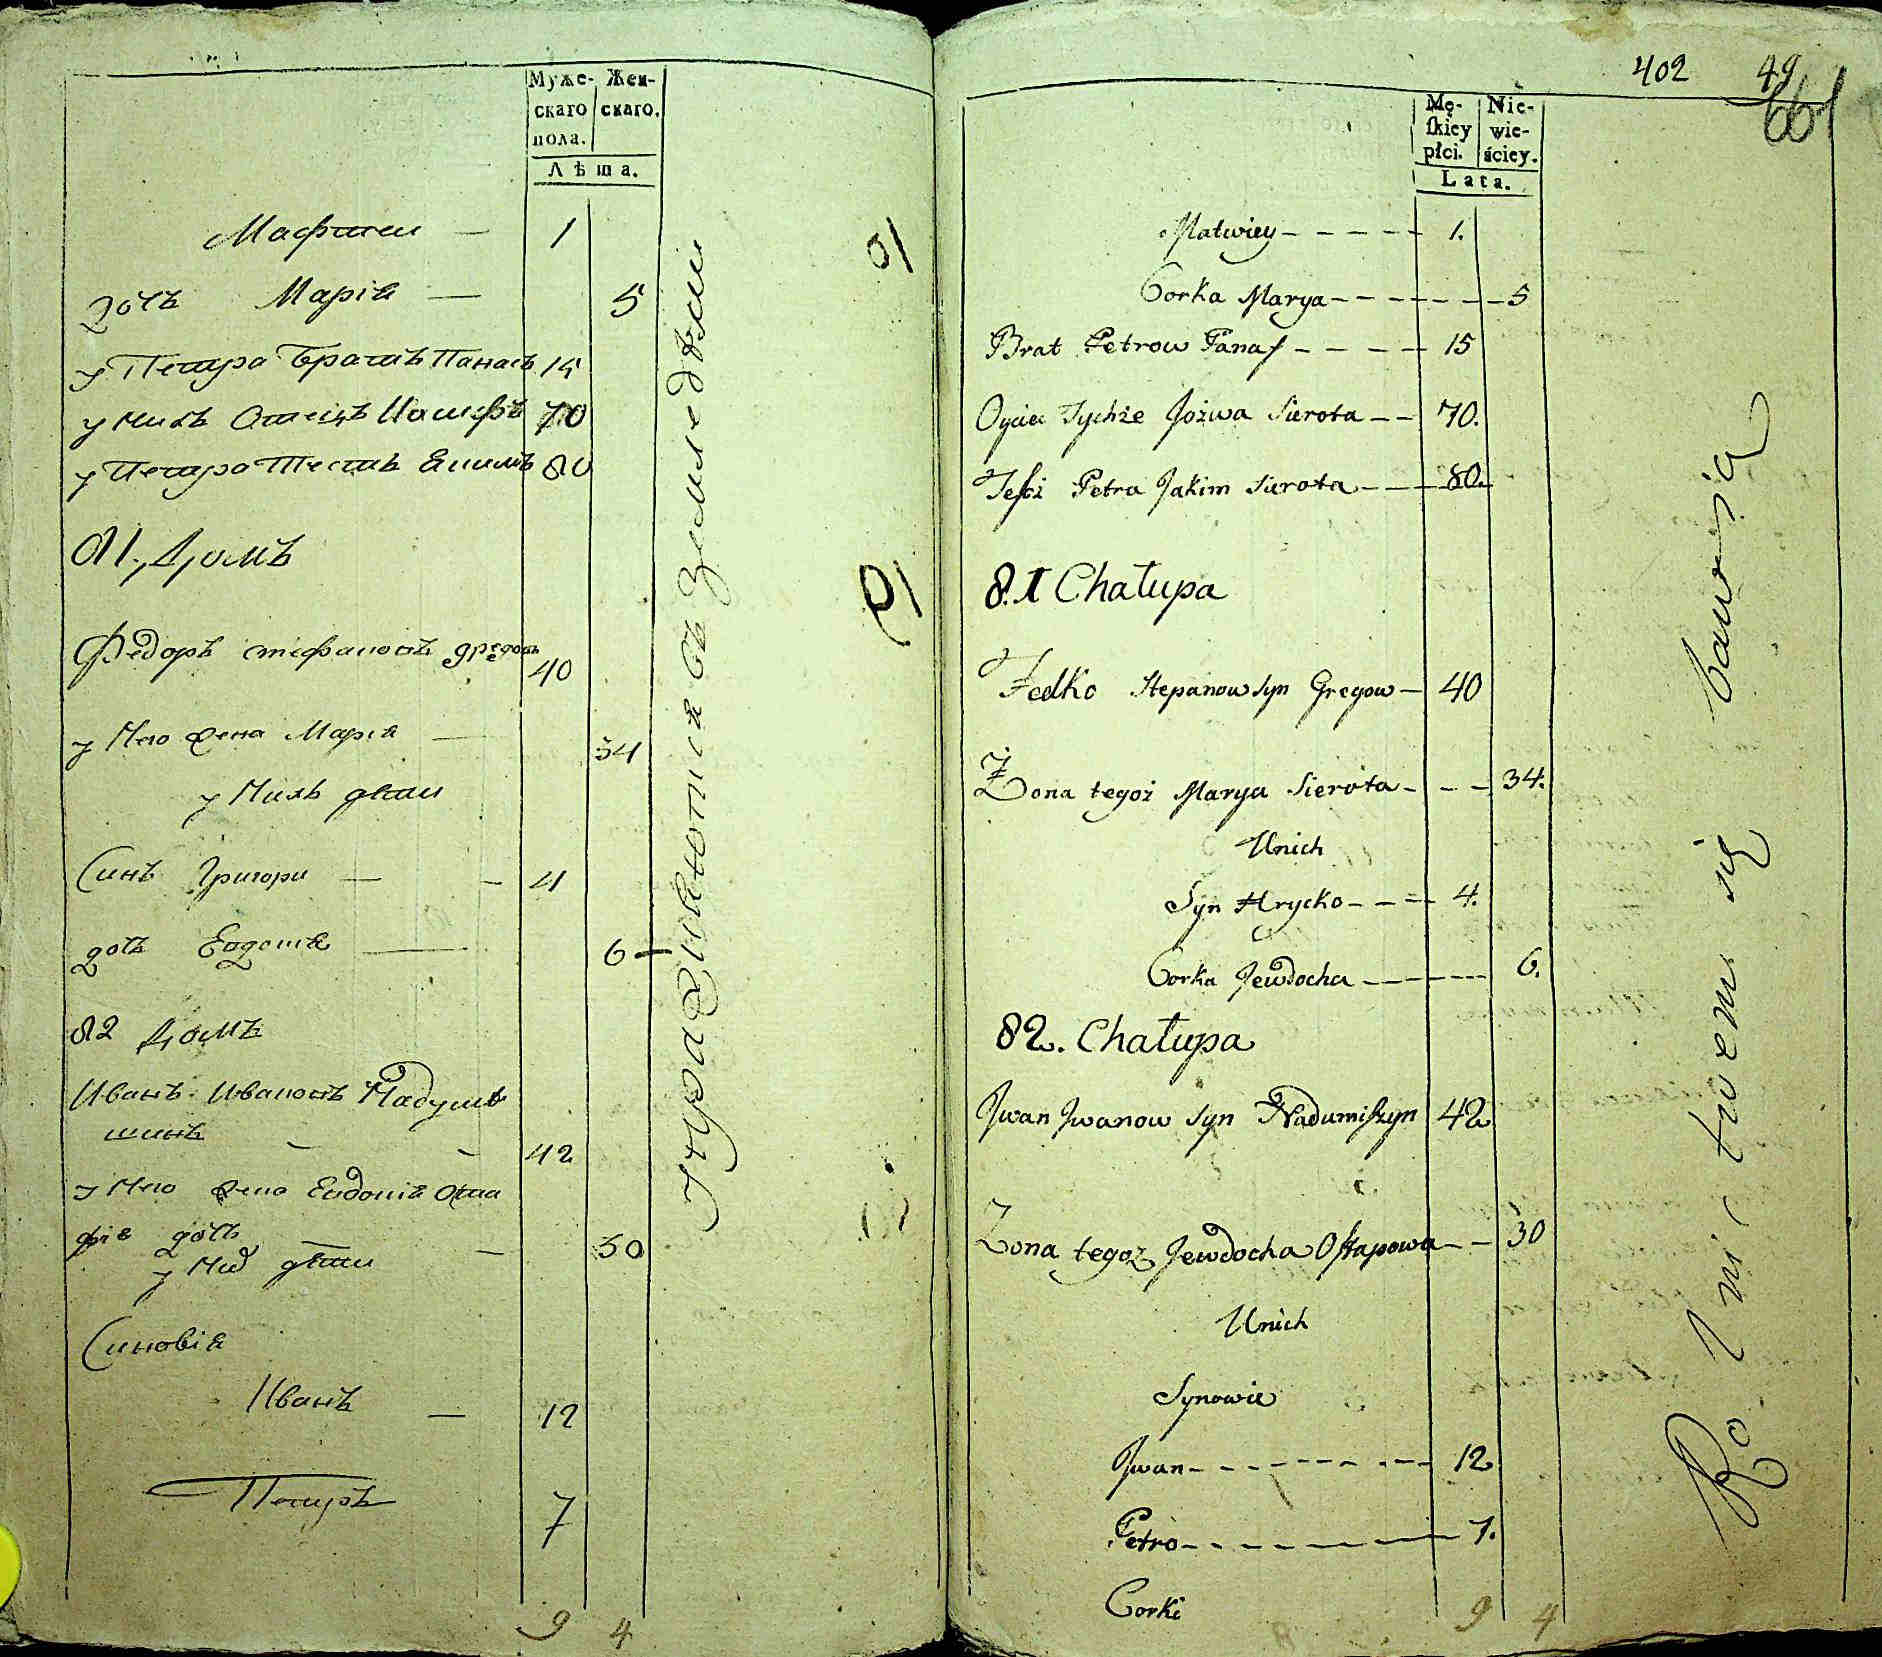 Муже-
скаго
пола.
Жен-
скаго.
Лѣта.
Мафтеи — 1
дочь Марія — 5
у Петра братъ Панасъ 15
у нихъ Отецъ Иосифъ 70
у Петра Тесть Екимъ 80
81. Домъ
Федоръ Стефановъ 40
у Него жена Марія — 34
у Нихъ дѣти
Синъ Григори — — 4
дочь Евдошя — 6 —
82 Домъ
Иванъ Ивановъ Надуми
шинъ — — 42
у Него жена Евдокія Оста
фіе дочь — 30
у Них дѣти
Синовія
Иванъ — 12
Петръ 7
9 4
упражняются въ Земледѣлїи
402 49
661
Mę-
skiey
płci.
Nie-
wie-
ściey.
Lata.
Matwiey - - - - - 1.
Corka Marya - - - - - - - 5
Brat Petrow Panas - - - - 15
Oyciec Tychże Jozwa Sierota - - 70.
Teść Petra Jakim Sierota - - - 80.
81 Chałupa
Fedko Stepanow syn Gregow - 40
Żona tegoż Marya Sierota - - - 34.
Unich
Syn Hrycko - - - - 4.
Corka Jewdocha - - - - - 6.
82. Chałupa
Jwan Jwanow syn Nadumiszyn 42
Żona tegoż Jewdocha Ostapowa - - 30
Unich
Synowie
Jwan - - - - - - - - 12
Petro - - - - - - - 7.
Corki
9 4
Rolnictwem się bawią